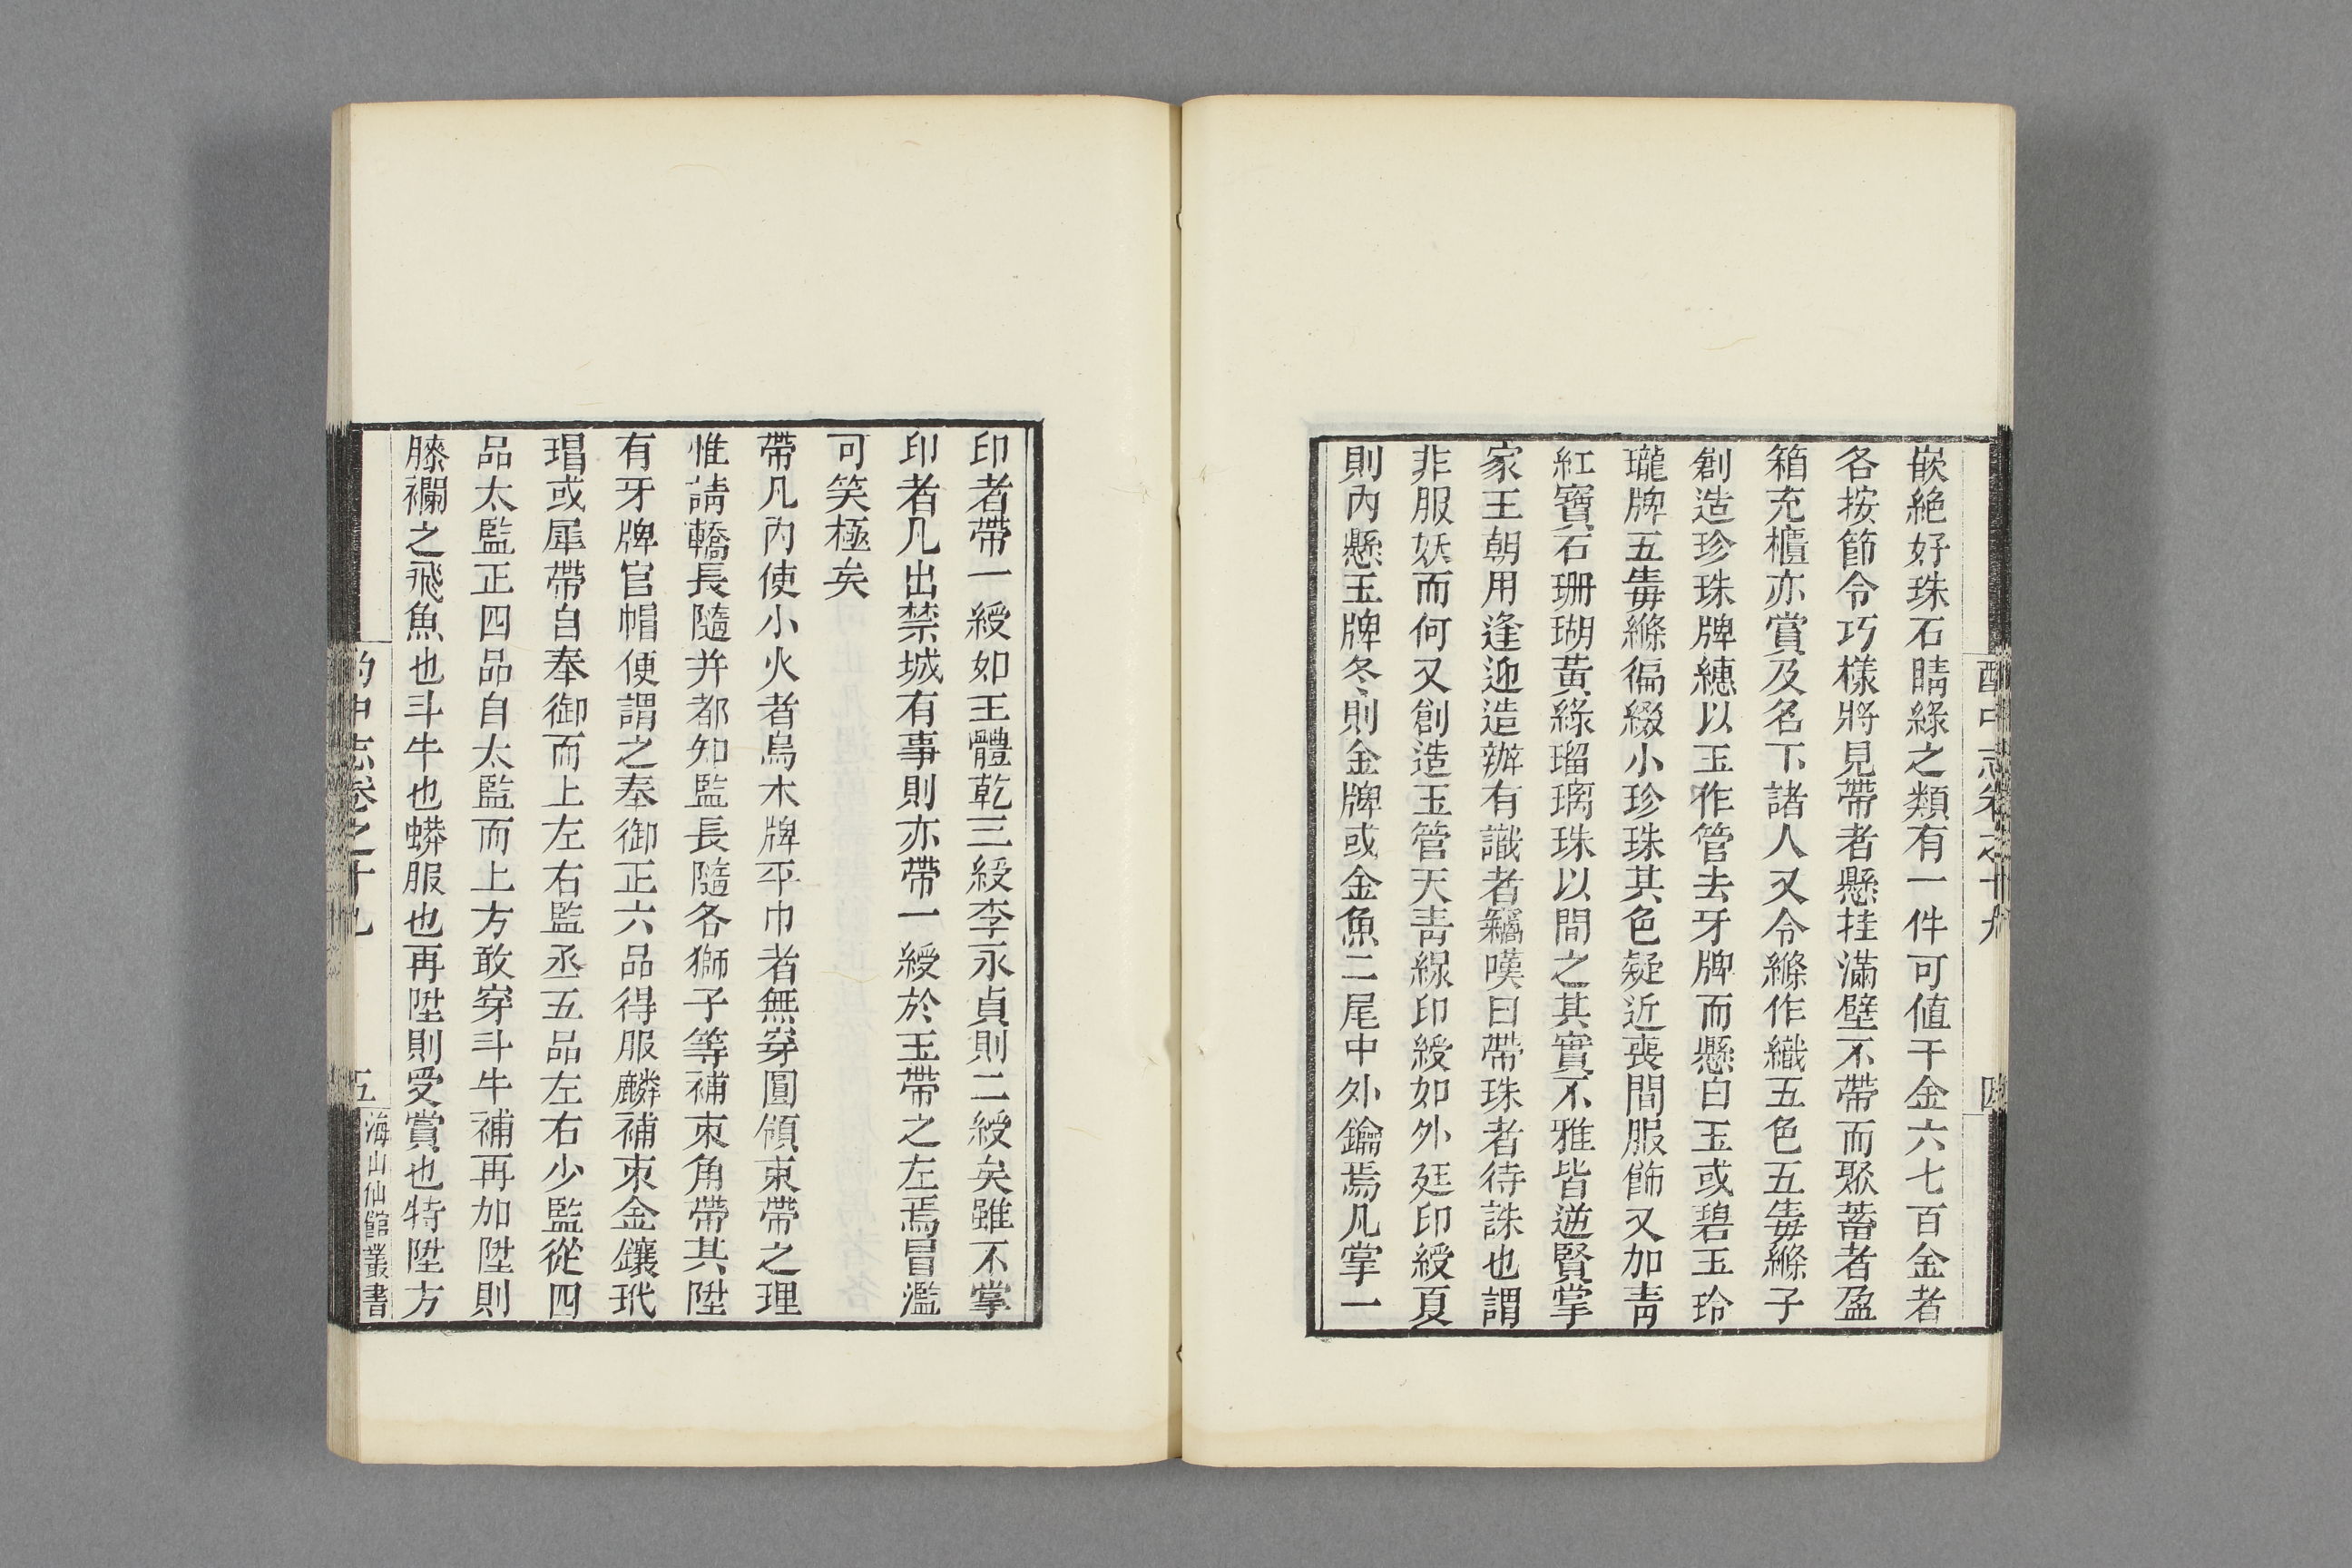 嵌絶好珠石睛綠之類有一件可値千金六七百金者
各按節令巧樣將見帶者懸挂滿壁不帶而聚蓄者盈
箱充櫃亦賞及名下諸人又令縧作織五色五毒縧子
創造珍珠牌繐以玉作管去牙牌而懸白玉或碧玉玲
瓏牌五毒縧徧綴小珍珠其色疑近喪間服飾又加靑
紅寶石珊瑚黃綠瑠璃珠以間之其實不雅皆逆賢掌
家王朝用逢迎造辦有識者竊嘆曰帶珠者待誅也謂
非服妖而何又創造玉管天靑線印綬如外廷印綬夏
則內懸玉牌冬則金牌或金魚二尾中外鑰焉凡掌一
酌中志卷之十九
四
印者帶一綬如王體乾三綬李永貞則二綬矣雖不掌
印者凡出禁城有事則亦帶一綬於玉帶之左焉冒濫
可笑極矣
帶凡內使小火者烏木牌平巾者無穿圓領束帶之理
惟請轎長隨并都知監長隨各獅子等補束角帶其陞
有牙牌官帽便謂之奉御正六品得服麟補束金鑲玳
瑁或犀帶自奉御而上左右監丞五品左右少監從四
品太監正四品自太監而上方敢穿斗牛補再加陞則
膝襴之飛魚也斗牛也蟒服也再陞則受賞也特陞方
酌中志卷之十九
五
海山仙館叢書